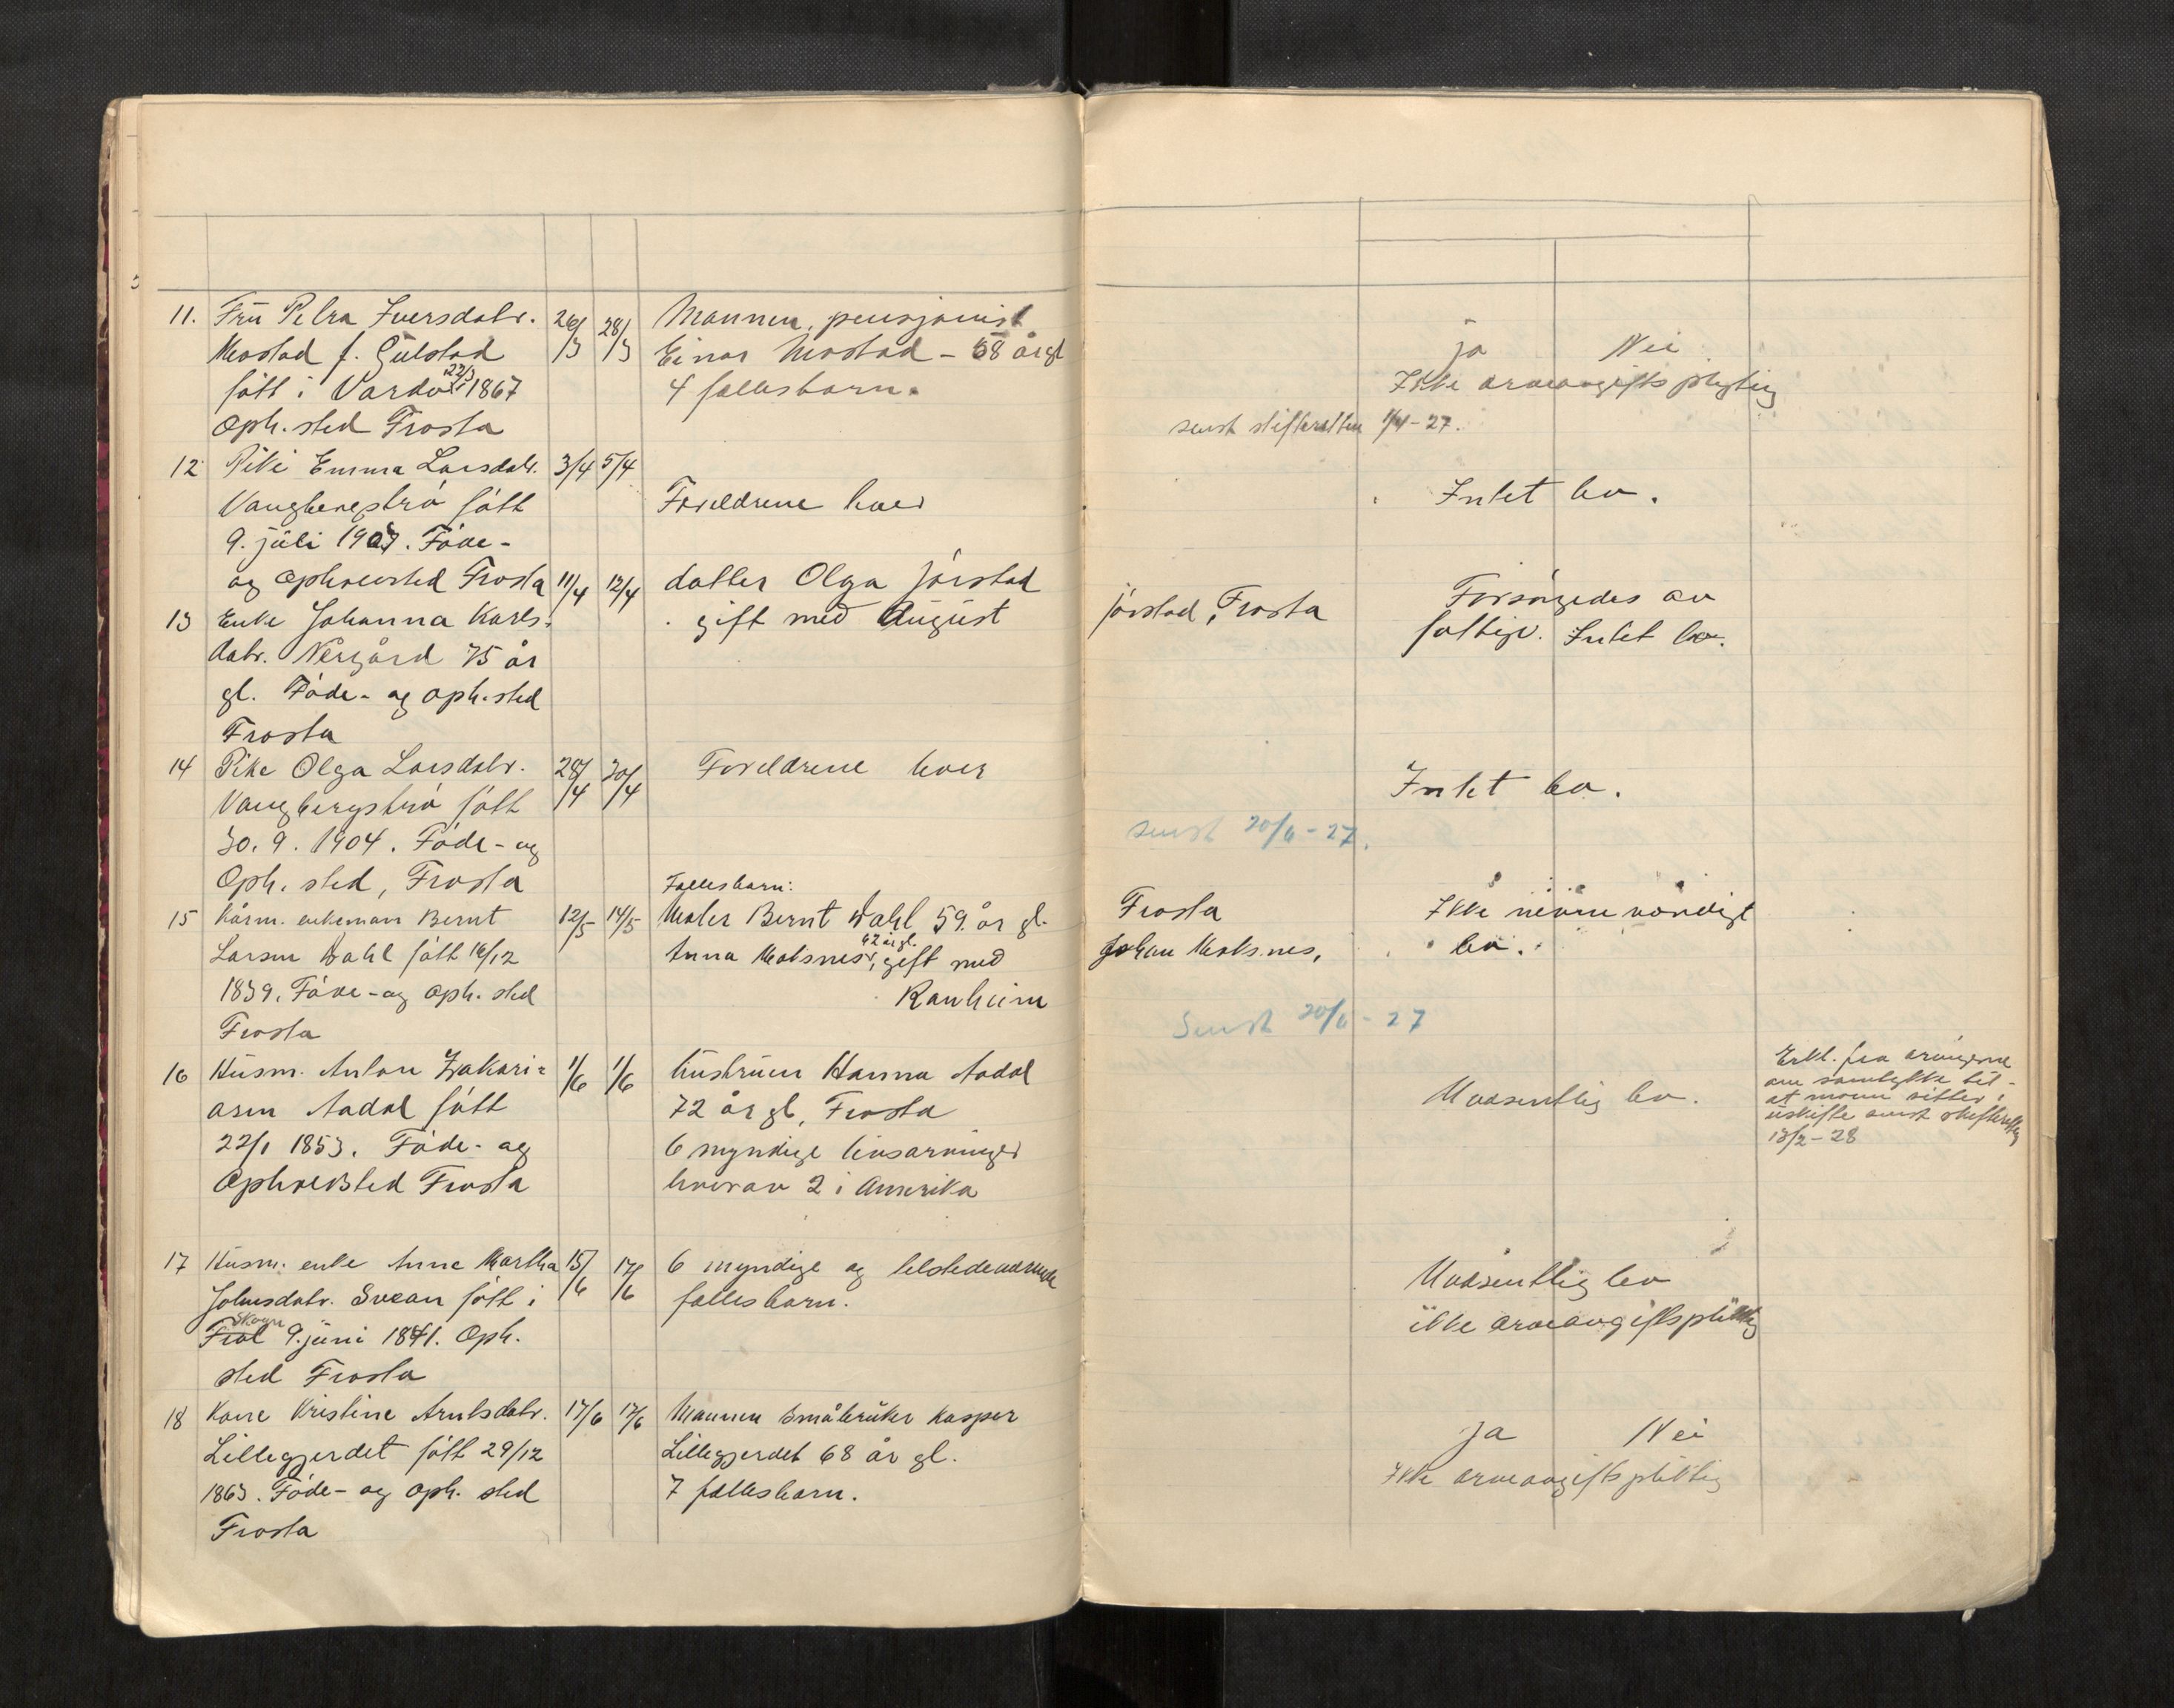 11. Fru Petra Iversdatr. 26/3 28/3 Mannen, pensjonist
Mostad f. Gulstad Einar Mostad - 68 år gl
født i Vardø 22/3 1867 4 fellesbarn.
Oph. sted Frosta
ja Nei
Ikke arveavgiftspligtig
sendt skifteretten 1/4-27.
12 Pike Emma Larsdatr. 3/4 5/4
Vangbergstrø født Foreldrene lever
9. juli 1907. Føde-
og Opholdssted Frosta
Intet bo.
13 Enke Johanna Karls- 11/4 12/4 datter Olga Jørstad
datr. Nergård 75 år gift med August
gl. Føde- og oph. sted
Frosta
Jørstad, Frosta Forsørgedes av
fattigv. Intet bo.
14 Pike Olga Larsdatr. 28/4 30/4 Foreldrene lever
Vangbergstrø født
30. 9. 1904. Føde- og
Oph. sted, Frosta
Intet bo.
sendt 20/6-27.
15 Kårm. enkemann Bernt 12/5 14/5 Fellesbarn:
Larsen Dahl født 16/12 Maler Bernt Dahl 59 år gl.
1839. Føde- og oph. sted Anna Maksnes, 42 år gl. gift med
Frosta Ranheim
Frosta Ikke nevneverdigt
Johan Maksnes, bo.
Sendt 20/6-27
16 Husm. Anton Zakari- 1/6 1/6 hustruen Hanna Aadal
asen Aadal født 72 år gl, Frosta
22/1 1853. Føde- og 6 myndige livsarvinger
Opholdssted Frosta hvorav 2 i Amerika
Uvæsentlig bo.
Erkl. fra arvingerne
om samtykke til
at moren sitter i
uskifte sendt skifteretten
13/2-28
17 Husm. enke Anne Martha 15/6 17/6 6 myndige og tilstedeværende
Johnsdatr. Svean født i fellesbarn.
Frol Skogn 9. juni 1841. Oph.
sted Frosta
Uvæsentlig bo
ikke arveavgiftspliktig
18 Kone Kristine Arntsdatr. 17/6 17/6 Mannen småbruker Kasper
Lillegjerdet født 29/12 Lillegjerdet 68 år gl.
1863. Føde- og oph. sted 7 fellesbarn.
Frosta
ja Nei
Ikke arveavgiftspliktig